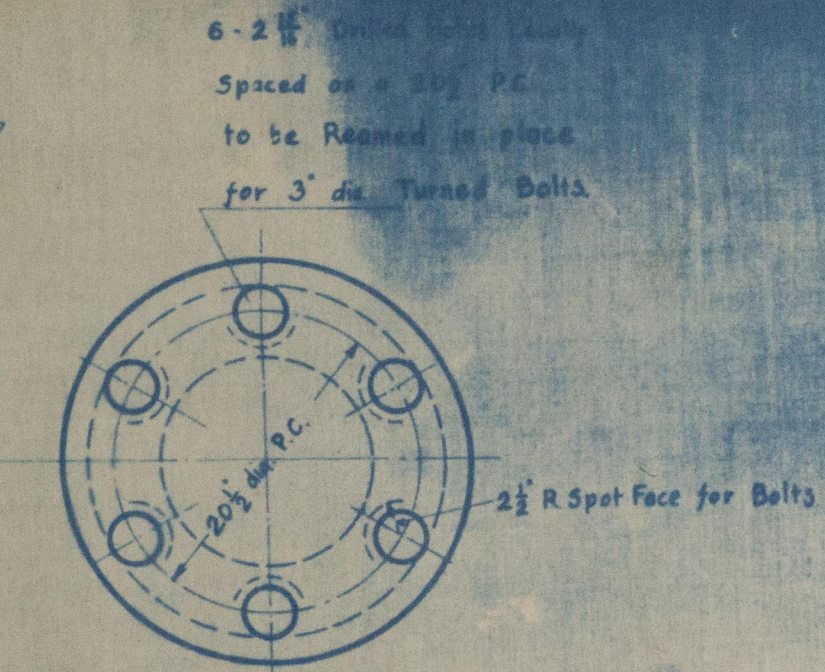 6 - 2 15/16" Drilled Holes Equally
Spaced on a 20½" P.C.
to be Reamed in place
for 3" dia. Turned Bolts.
20½" dia. P.C.
2½" R Spot Face for Bolts